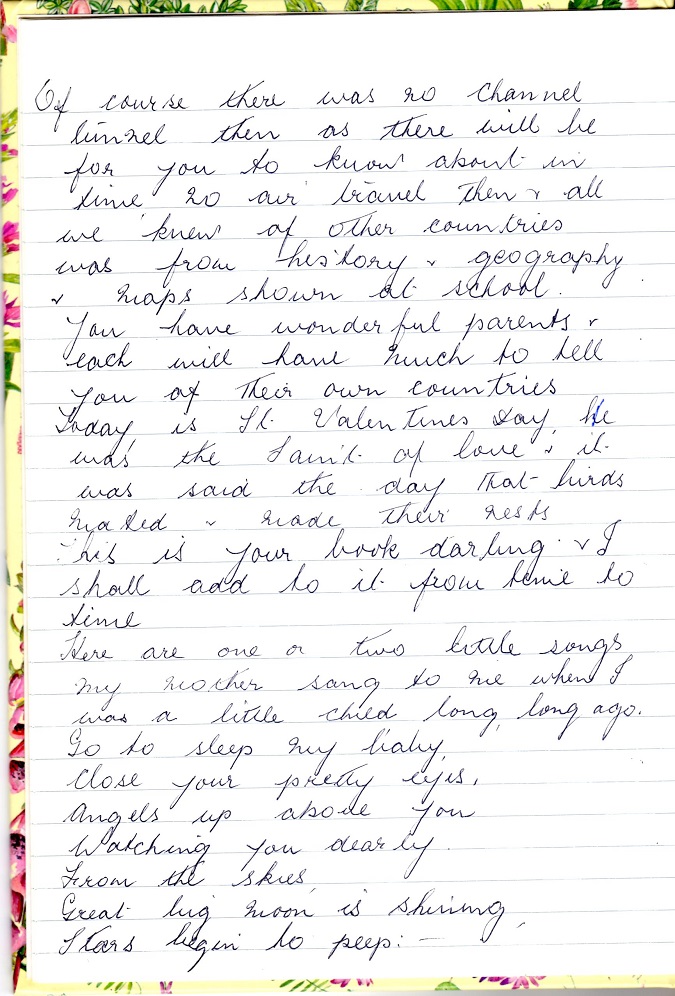 Of course there was no channel
tunnel then as there will be
for you to know about in
time no air travel then & all
we knew of other countries
was from history & geography
& maps shown at school.
You have wonderful parents &
each will have much to tell
you of their own countries
Today is St. Valentines Day, He
was the Saint of love & it
was said the day that birds
mated & made their nests
This is your book darling & I
shall add to it from time to
time
Here are one or two little songs
my mother sang to me when I
was a little child long, long ago.
Go to sleep my baby,
Close your pretty eyes,
Angels up above you
Watching you dearly.
From the skies
Great big moon is shining,
Stars begin to peep: —